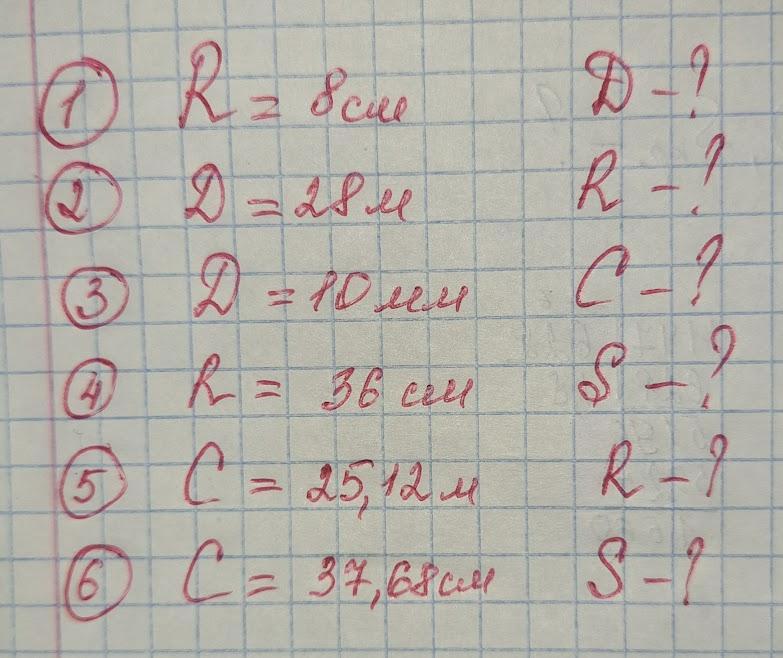 1 R = 8см D - ?
2 D = 28м R - ?
3 D = 10мм C - ?
4 R = 36 см S - ?
5 C = 25,12 м R - ?
6 C = 37,68см S - ?